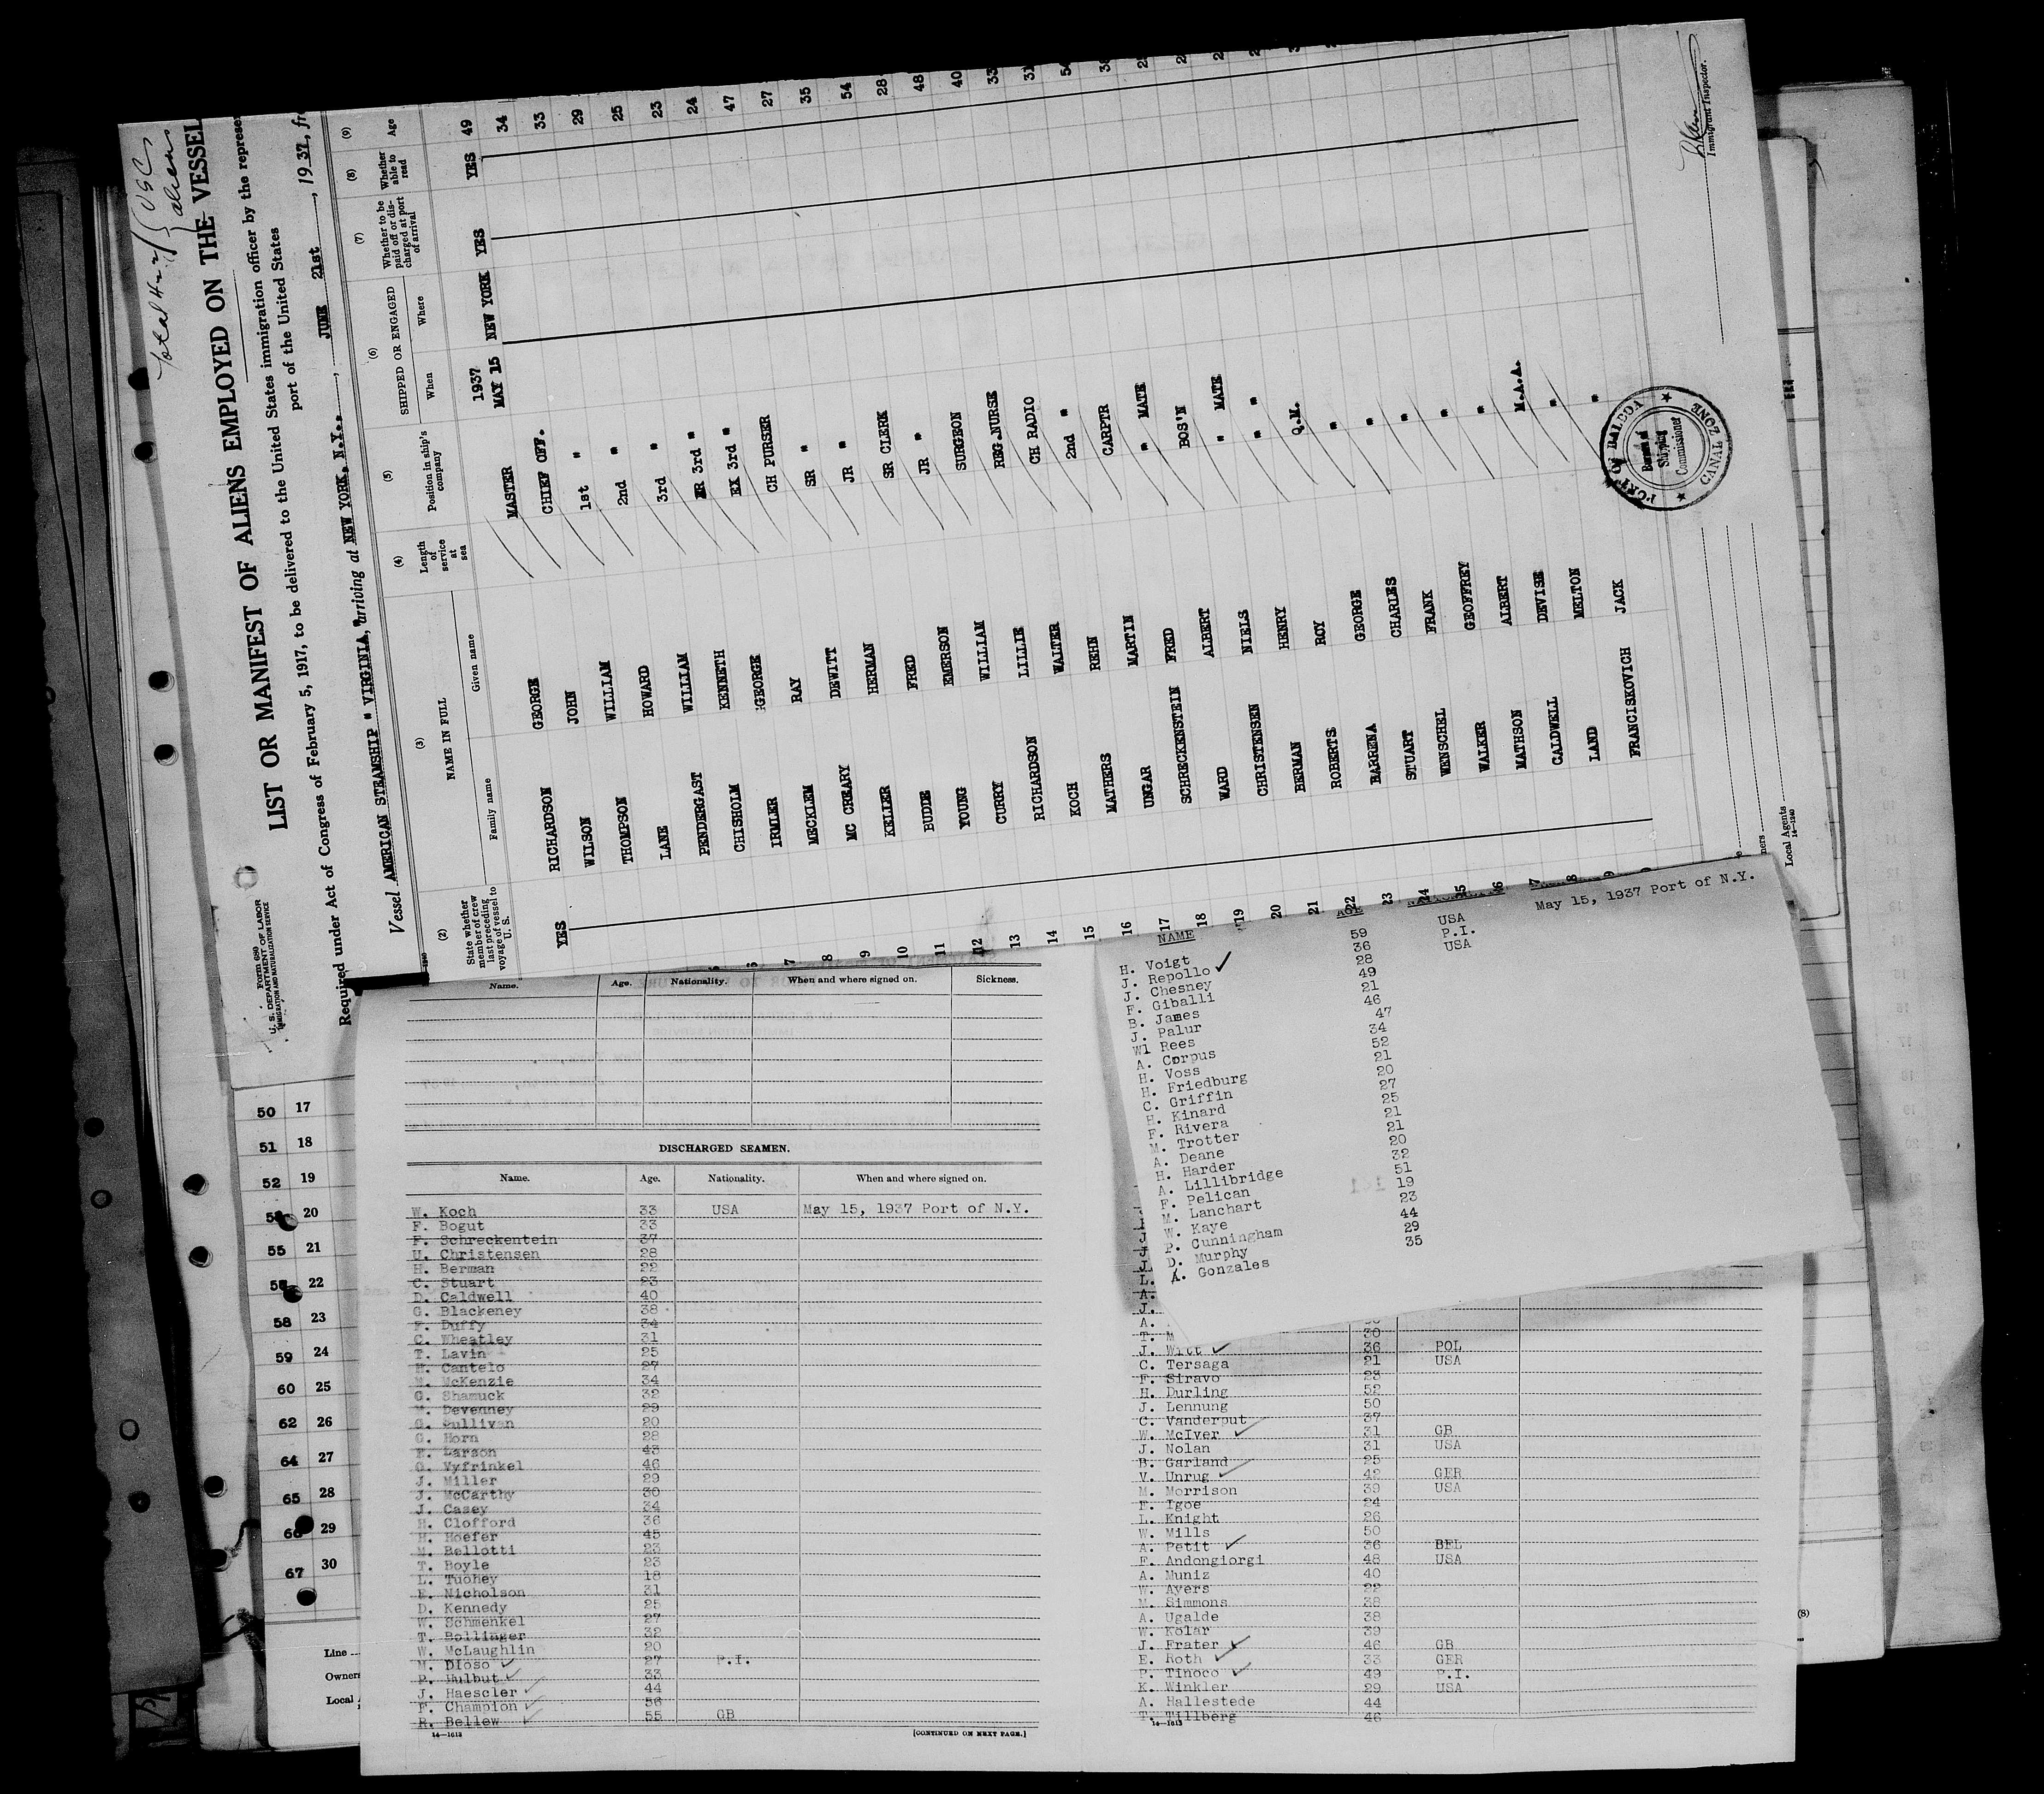 Total
USC
aliens
Form 680
U. S. DEPARTMENT OF LABOR
IMMIGRATION AND NATURALIZATION SERVICE
LIST OR MANIFEST OF ALIENS EMPLOYED ON THE VESSEL
Required under Act of Congress of February 5, 1917, to be delivered to the United States immigration officer by the represe
port of the United States
Vessel AMERICAN STEAMSHIP " VIRGINIA, " arriving at NEW YORK, N.Y., JUNE 21st, 1937, fr
(2) (3) (4) (5) (6) (7) (8) (9)
State whether member of crew last preceding voyage of vessel to U. S.
NAME IN FULL
Family name Given name
Length of service at sea
Position in ship's company
SHIPPED OR ENGAGED
When Where
Whether to be paid off or discharged at port of arrival
Whether able to read
Age
1937
YES RICHARDSON GEORGE MASTER MAY 15 NEW YORK YES YES 49
WILSON JOHN CHIEF OFF. 34
THOMPSON WILLIAM 1st " 33
LANE HOWARD 2nd " 29
PENDERGAST WILLIAM 3rd " 25
CHISHOLM KENNETH JR 3rd " 23
IRMLER GEORGE EX 3rd " 24
7 MECKLEM RAY CH PURSER 47
8 MC CREARY DEWITT SR " 27
9 KELLER HERMAN JR " 35
10 BUDE FRED SR CLERK 54
11 YOUNG EMERSON JR " 28
12 CURRY WILLIAM SURGEON 48
13 RICHARDSON LILLIE REG.NURSE 40
14 KOCH WALTER CH RADIO 33
15 MATHERS REHN 2nd " 31
16 UNGAR MARTIN CARPTR 54
17 SCHRECKENSTEIN FRED " MATE 38
18 WARD ALBERT BOS'N
19 CHRISTENSEN NIELS " MATE
20 BERMAN HENRY " "
21 ROBERTS ROY Q.M.
22 BARRENA GEORGE "
23 STUART CHARLES "
24 WENSCHEL FRANK "
25 WALKER GEOFFREY "
26 MATHSON ALBERT "
27 CALDWELL DEVISE M.A.A.
28 LAND MELTON "
29 FRANCISKOVICH JACK "
PORT OF BALBOA
Bureau of
Shipping
Commissioner
CANAL ZONE
Immigrant Inspector.
Local Agents
14—1240
NAME AGE
H. Voigt 59 USA May 15, 1937 Port of N.Y.
J. Repollo 36 P.I.
J. Chesney 28 USA
F. Giballi 49
B. James 21
J. Palur 46
Wl Rees 47
A. Corpus 34
H. Voss 52
H. Friedburg 21
C. Griffin 20
H. Kinard 27
F. Rivera 25
M. Trotter 21
A. Deane 21
H. Harder 20
A. Lillibridge 32
F. Pelican 51
M. Lanchart 19
W. Kaye 23
P. Cunningham 44
D. Murphy 29
A. Gonzales 35
Name. Age. Nationality. When and where signed on. Sickness.
DISCHARGED SEAMEN.
Name. Age. Nationality. When and where signed on.
W. Koch 33 USA May 15, 1937 Port of N.Y.
F. Bogut 33
F. Schreckentein 37
U. Christensen 28
H. Berman 22
C. Stuart 23
D. Caldwell 40
G. Blackeney 38
F. Duffy 34
C. Wheatley 31
T. Lavin 25
H. Cantelo 27
W. McKenzie 34
G. Shamuck 32
M. Devenney 29
G. Sullivan 20
G. Horn 28
E. Larson 43
O. Vyfrinkel 46
J. Miller 29
J. McCarthy 30
J. Casey 34
H. Clofford 36
H. Hoefer 45
M. Bellotti 23
T. Boyle 23
L. Tuohey 18
E. Nicholson 31
D. Kennedy 25
W. Schmenkel 27
T. Bollinger 32
W. McLaughlin 20
M. Dioso 27 P.I.
P. Hulbut 33
J. Haescler 44
F. Champion 56
R. Bellew 55 GB
14—1613
[CONTINUED ON NEXT PAGE.]
J.
L.
A.
J.
A.
T. M 30
J. Witt 36 POL
C. Tersaga 21 USA
F. Siravo 23
H. Durling 52
J. Lennung 50
C. Vanderput 37
W. McIver 31 GB
J. Nolan 31 USA
B. Garland 25
V. Unrug 42 GER
M. Morrison 39 USA
F. Igoe 24
L. Knight 26
W. Mills 50
A. Petit 36 BEL
F. Andongiorgi 48 USA
A. Muniz 40
W. Ayers 22
M. Simmons 38
A. Ugalde 38
W. Kolar 39
J. Frater 46 GB
E. Roth 33 GER
P. Tinoco 49 P.I.
K. Winkler 29 USA
A. Hallestede 44
T. Tillberg 46
14—1613
50 17
51 18
52 19
20
55 21
22
58 23
59 24
60 25
62 26
64 27
65 28
66 29
67 30
Line
Owners
Local
(8)